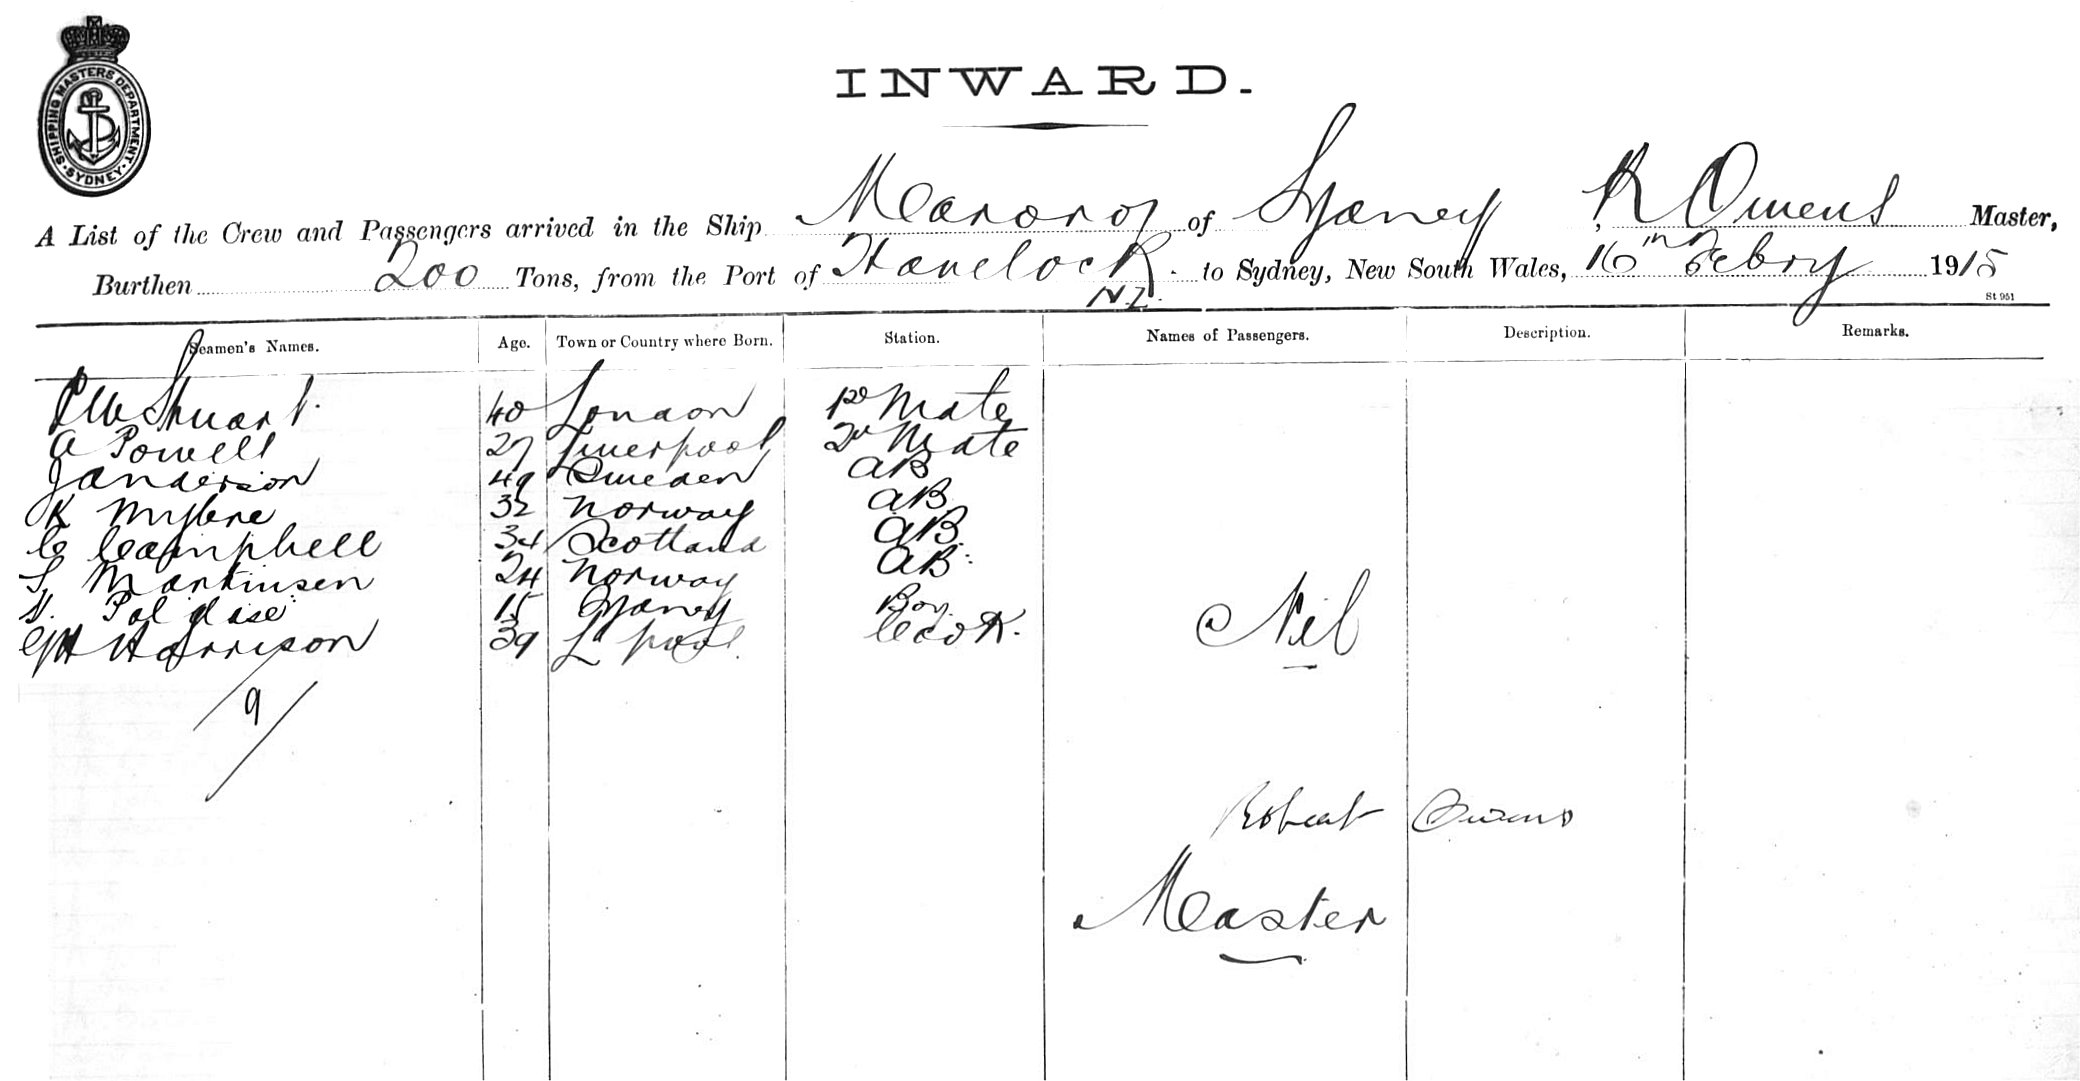 SHIPPING MASTERS DEPARTMENT. SYDNEY.
INWARD.
A List of the Crew and Passengers arrived in the Ship Mararoa of Sydney, R Owens Master,
Burthen 200 Tons, from the Port of Havelock N.Z. to Sydney, New South Wales, 16th Febry 1915
St 951
Seamen's Names. Age. Town or Country where Born. Station. Names of Passengers. Description. Remarks.
Stuart 40 London 1st Mate
A Powell 27 Liverpool 2d Mate
J Anderson 49 Sweden AB
K 32 Norway AB
C Campbell 34 Scotland AB
S Martinsen 24 Norway AB
Polglase 15 Sydney Boy
Harrison 39 L'pool Cook.
Nil
9
Robert Owens
Master